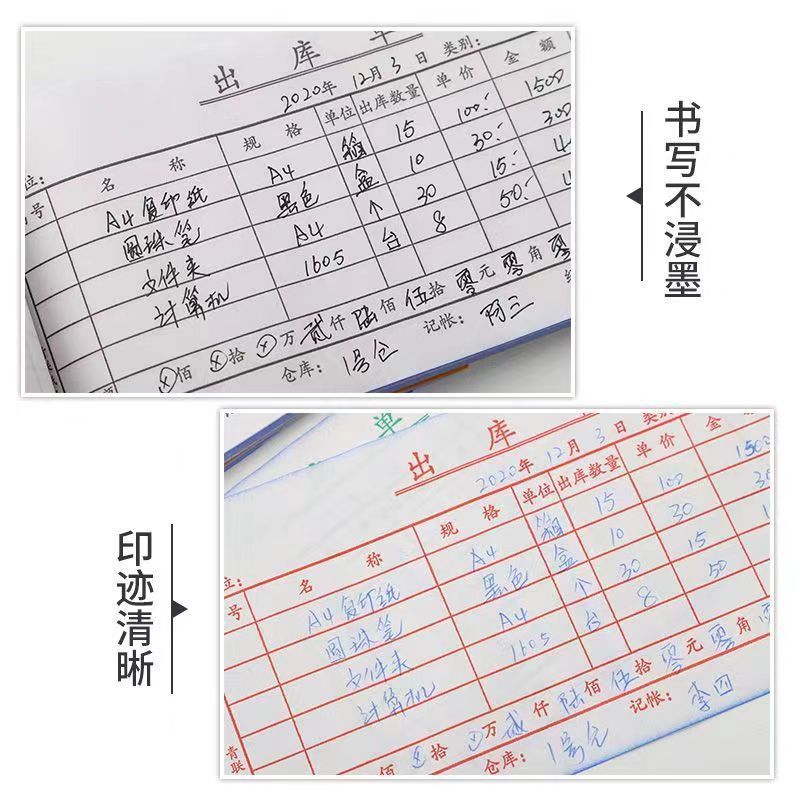 出 库 单
2020年 12月 3日 类别:
位:
号 名 称 规 格 单位 出库数量 单 价 金 额
A4复印纸 A4 箱 15 100.- 1500
圆珠笔 黑色 盒 10 30.- 300
文件夹 A4 个 30 15.-
计算机 1605 台 8 50.-
佰 拾 万 贰 仟 陆 佰 伍 拾 零 元 零 角 零
仓库: 1号仓 记帐:
书写不浸墨
单
出 库
2020年 12月 3日 类别
位:
号 名 称 规 格 单位 出库数量 单 价 金 额
A4复印纸 A4 箱 15 100 1500
圆珠笔 黑色 盒 10 30
文件夹 A4 个 30 15
计算机 1605 台 8 50
佰 拾 万 贰 仟 陆 佰 伍 拾 零 元 零 角
青联 仓库: 1号仓 记帐: 李四
印迹清晰